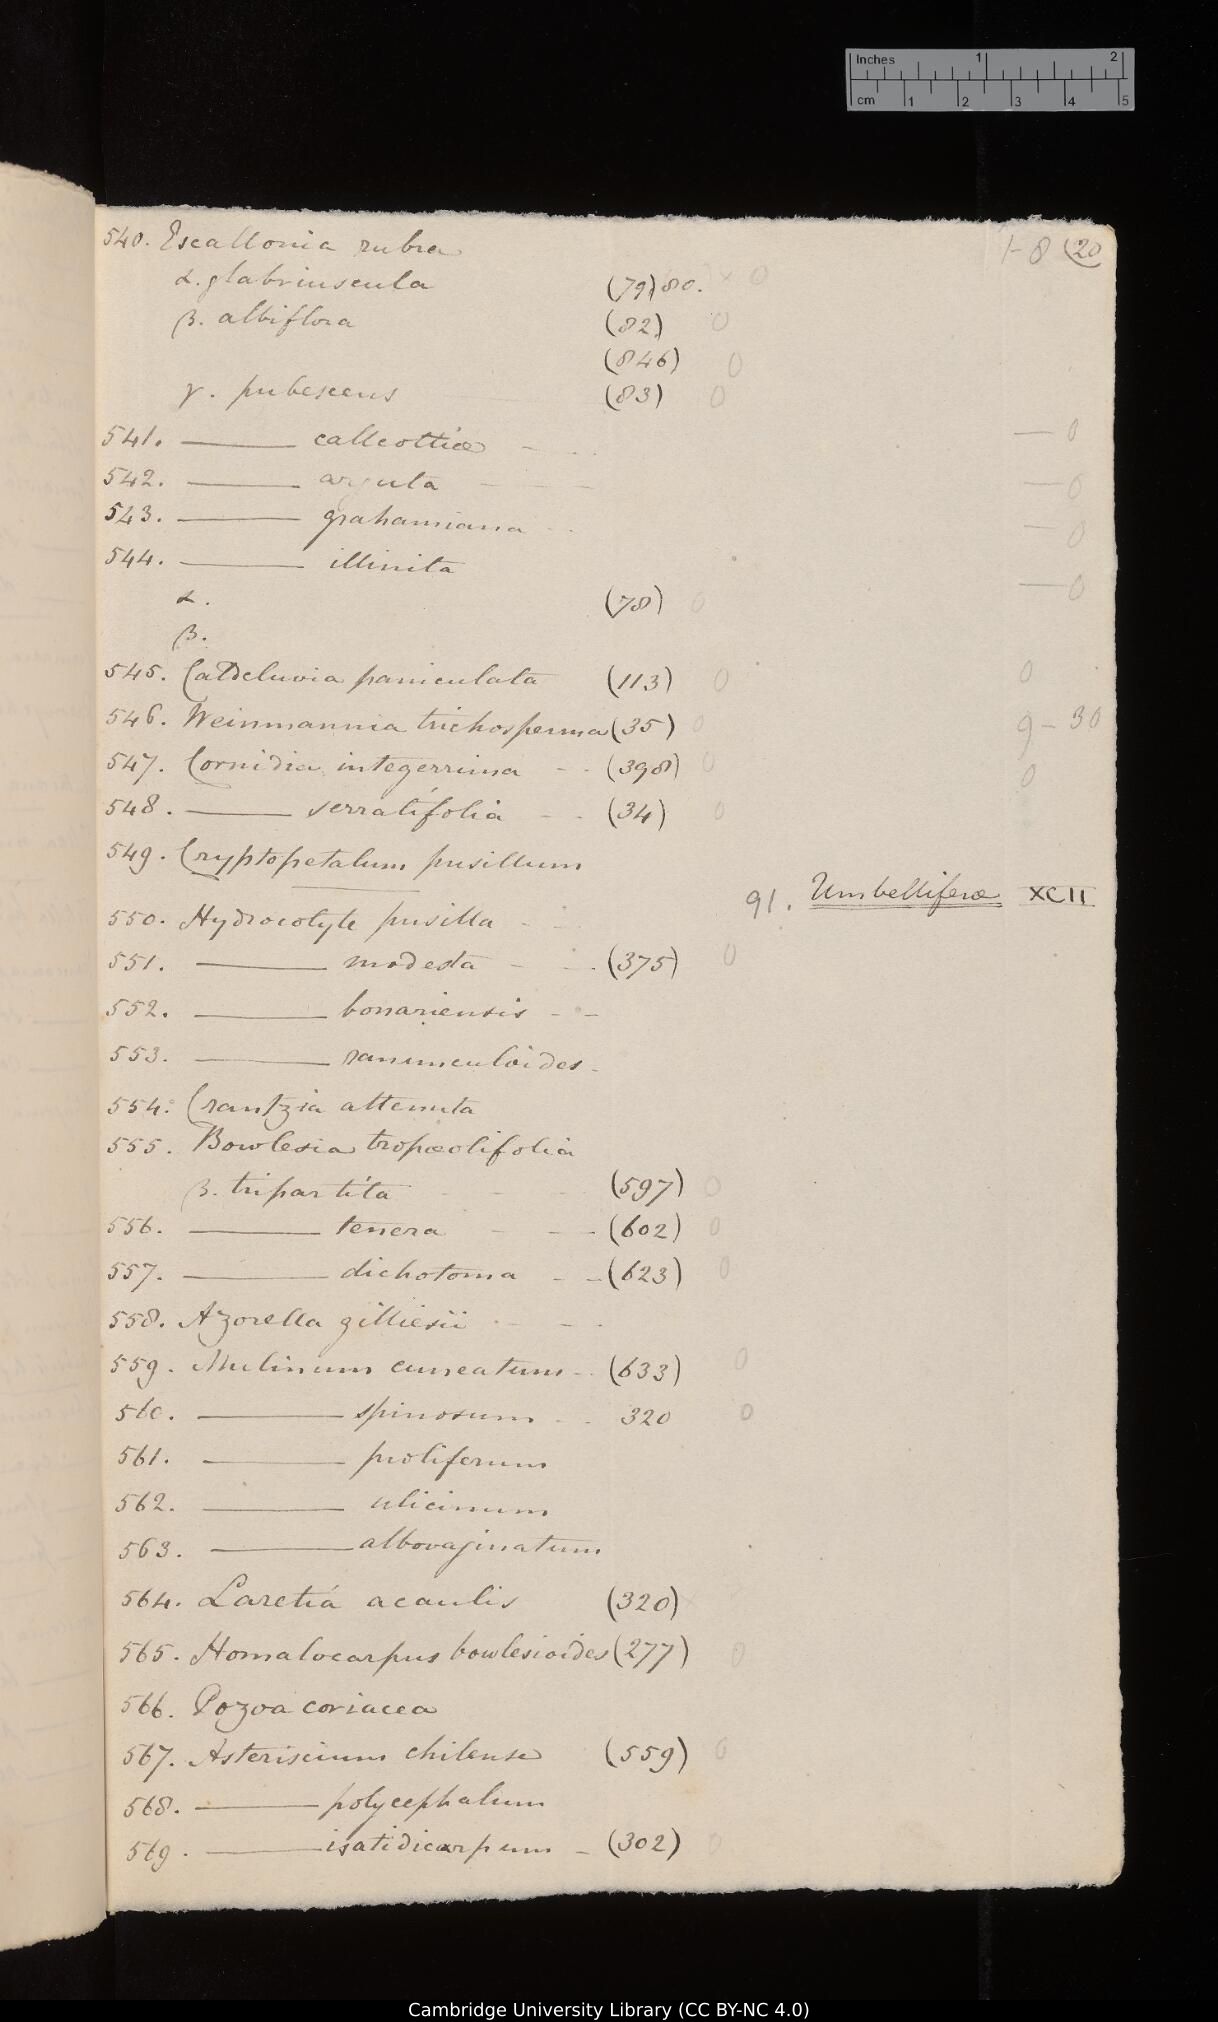 Inches 1 2
cm 1 2 3 4 5
540. Escallonia rubra 1-8 (20
α. glabriuscula (79) 80. × 0
β. albiflora (82) 0
(846) 0
γ. pubescens (83) 0
541. ——— callcottiæ - - — 0
542. ——— arguta - - — 0
543. ——— grahamiana - - — 0
544. ——— illinita — 0
α. (78) 0
β.
545. Caldcluvia paniculata (113) 0 0
546. Weinmannia trichosperma (35) 0 9-30
547. Cornidia integerrima - - (398) 0 0
548. ——— serratifolia - - (34) 0
549. Cryptopetalum pusillum
91. Umbelliferæ XCII
550. Hydrocotyle pusilla - -
551. ——— modesta - - (375) 0
552. ——— bonariensis - -
553. ——— ranunculoides -
554. Crantzia attenuta
555. Bowlesia tropæolifolia
β. tripartita - - - (597) 0
556. ——— tenera - - - (602) 0
557. ——— dichotoma - - (623) 0
558. Azorella gilliesii - - -
559. Mulinum cuneatum - - (633) 0
560. ——— spinosum - - 320 0
561. ——— proliferum
562. ——— ulicinum
563. ——— albovaginatum
564. Laretia acaulis (320) ×
565. Homalocarpus bowlesioides (277) 0
566. Pozoa coriacea
567. Asteriscium chilense (559) 0
568. ——— polycephalum
569. ——— isatidicarpum - (302) 0
Cambridge University Library (CC BY-NC 4.0)